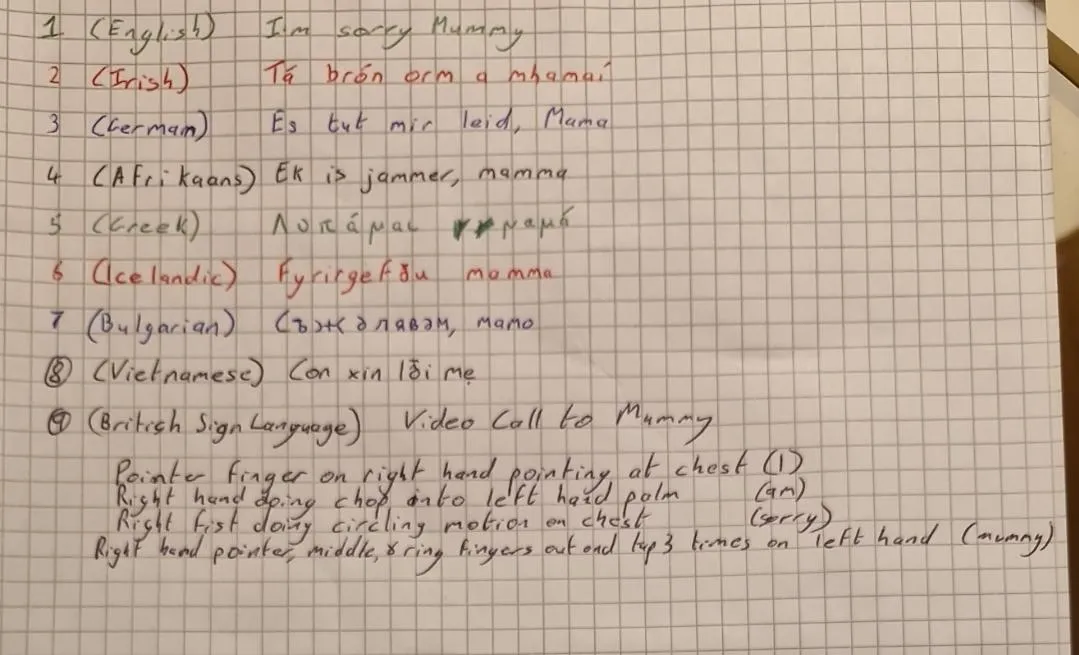 1 (English) I'm sorry Mummy
2 (Irish) Tá brón orm a mhamaí
3 (German) Es tut mir leid, Mama
4 (Afrikaans) Ek is jammer, mamma
5 (Greek) Λυπάμαι μαμά
6 (Icelandic) Fyrirgefðu mamma
7 (Bulgarian) Съжалявам, мамо
8 (Vietnamese) Con xin lỗi mẹ
9 (British Sign Language) Video Call to Mummy
Pointer finger on right hand pointing at chest (I)
Right hand doing chop onto left hand palm (am)
Right fist doing circling motion on chest (sorry)
Right hand pointer, middle, & ring fingers out and tap 3 times on left hand (mummy)